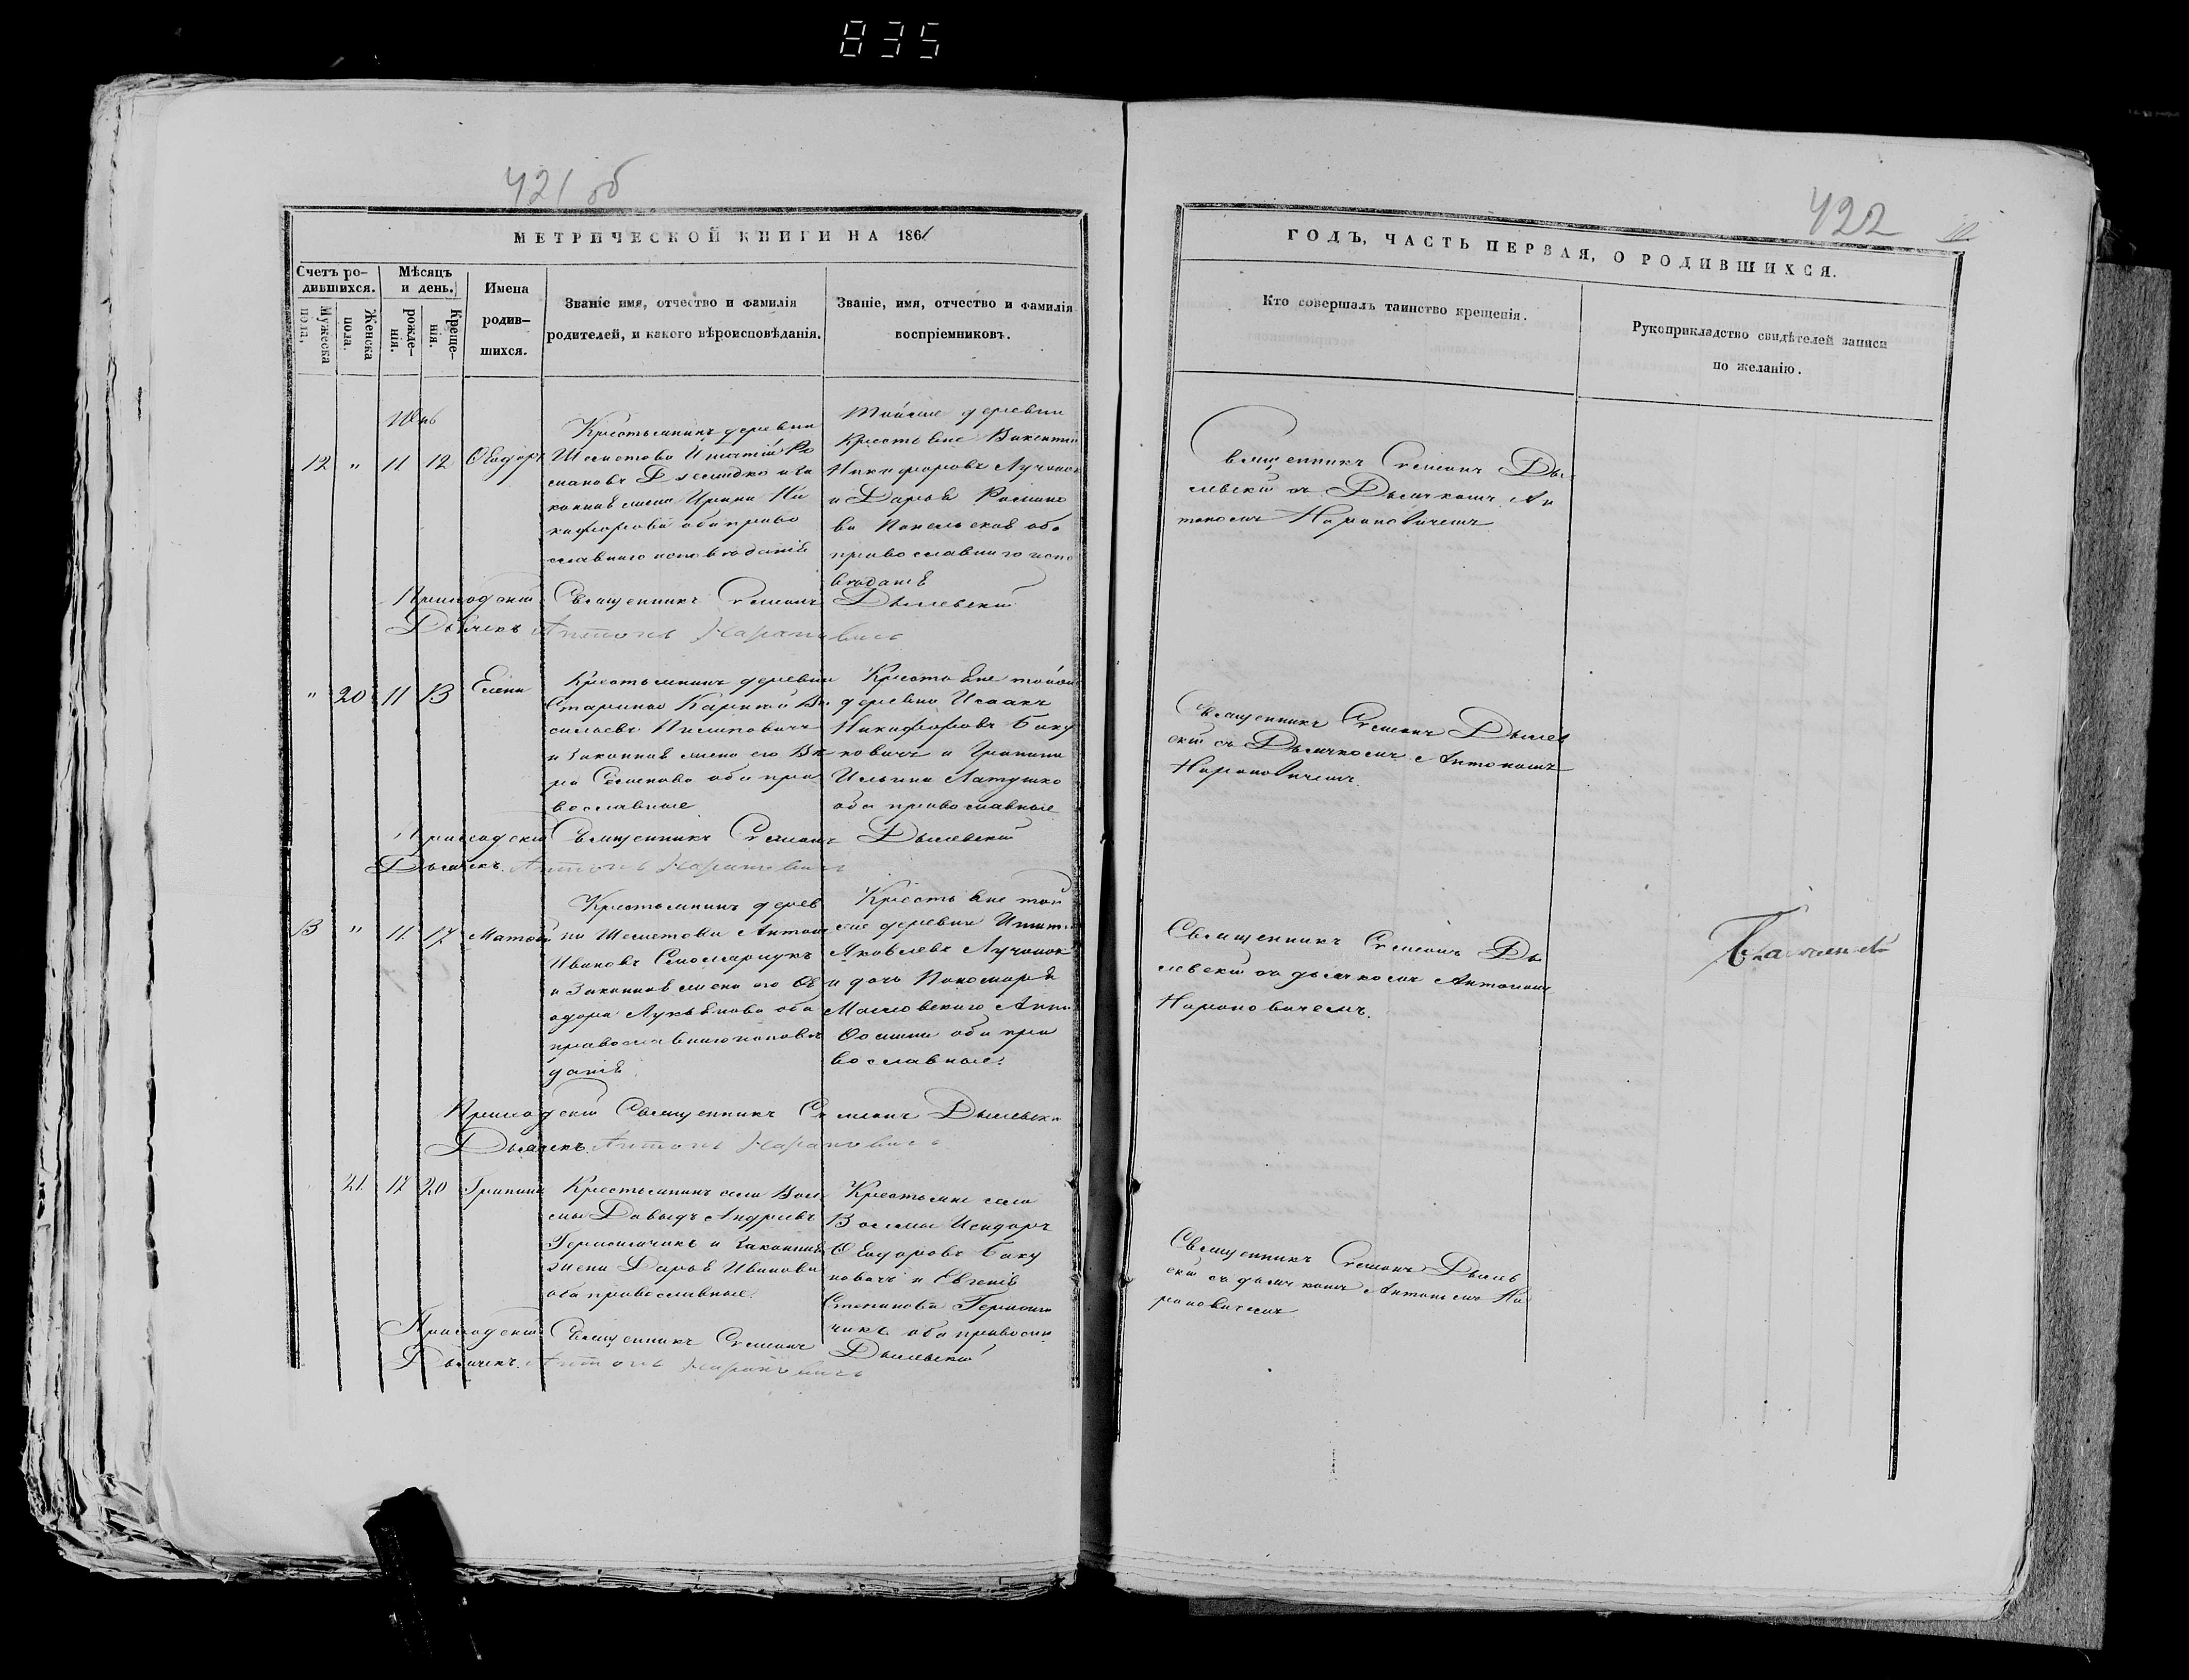 835
421 об
МЕТРИЧЕСКОЙ КНИГИ НА 1861
Счетъ ро-
дившихся.
Мужеска
пола.
Женска
пола.
Мѣсяцъ
и день.
рожде-
нія.
Креще-
нія.
Имена
родив-
шихся.
Званіе имя, отчество и фамилія
родителей, и какого вѣроисповѣданія.
Званіе, имя, отчество и фамилія
воспріемниковъ.
12 " 11 12 Ѳеодоръ
Крестьянинъ деревни
Шеметова Игнатій Ро
мановъ
конная жена Ирина Ни
кифорова оба право
славнаго исповѣданія
Тойже деревни
Крестьяне Викентій
Никифоровъ Лучонокъ
и Дарья Романо
ва оба
православнаго испо
вѣданія
Приходскій Священникъ Семіонъ Дылевскій
Дьячекъ Антонъ Нарановичъ
" 20 11 13 Елена
Крестьянинъ деревни
Старины Харитонъ Ва
сильевъ Пилиповичъ
и законная жена его Ва
ра Семенова оба пра
вославные
Крестьяне тойже
деревни Исаакъ
Никифоровъ Баку
новичъ и Грипина
Ильина Латушко
оба православные
Приходскій Священникъ Семіонъ Дылевскій
Дьячекъ Антонъ Нарановичъ
13 " 11 17 Матѳей
Крестьянинъ дерев
ни Шеметова Антонъ
Ивановъ
и законная жена его Ѳе
одора Лукьянова оба
православнаго исповѣ
данія
Крестьяне той
же деревни Игнатій
Яковлевъ Лучонокъ
и дочь Пономаря
Масловскаго Анна
Осипова оба пра
вославные.
Приходскій Священникъ Семіонъ Дылевскій
Дьячекъ Антонъ Нарановичъ
21 17 20 Грипина
Крестьянинъ села Вол
мы Давыдъ Андреевъ
Герасимчикъ и законная
жена Дарья Иванова
оба православные.
Крестьяне села
Волмы Исидоръ
Ѳеодоровъ Баку
новичъ и Евгенія
Степанова Герасим
чикъ оба правосла
Приходскій Священникъ Семіонъ Дылевскій
Дьячекъ Антонъ Нарановичъ
422
ГОДЪ, ЧАСТЬ ПЕРВАЯ, О РОДИВШИХСЯ.
Кто совершалъ таинство крещенія.
Рукоприкладство свидѣтелей записи
по желанію.
Священникъ Семіонъ Ды
левскій съ Дьячкомъ Ан
тономъ Нарановичемъ
Священникъ Семіонъ Дылев
скій съ Дьячкомъ Антономъ
Нарановичемъ.
Священникъ Семіонъ Ды
левскій съ дьячкомъ Антономъ
Нарановичемъ.
Священникъ Семіонъ Дылев
скій съ дьячкомъ Антономъ На
рановичемъ